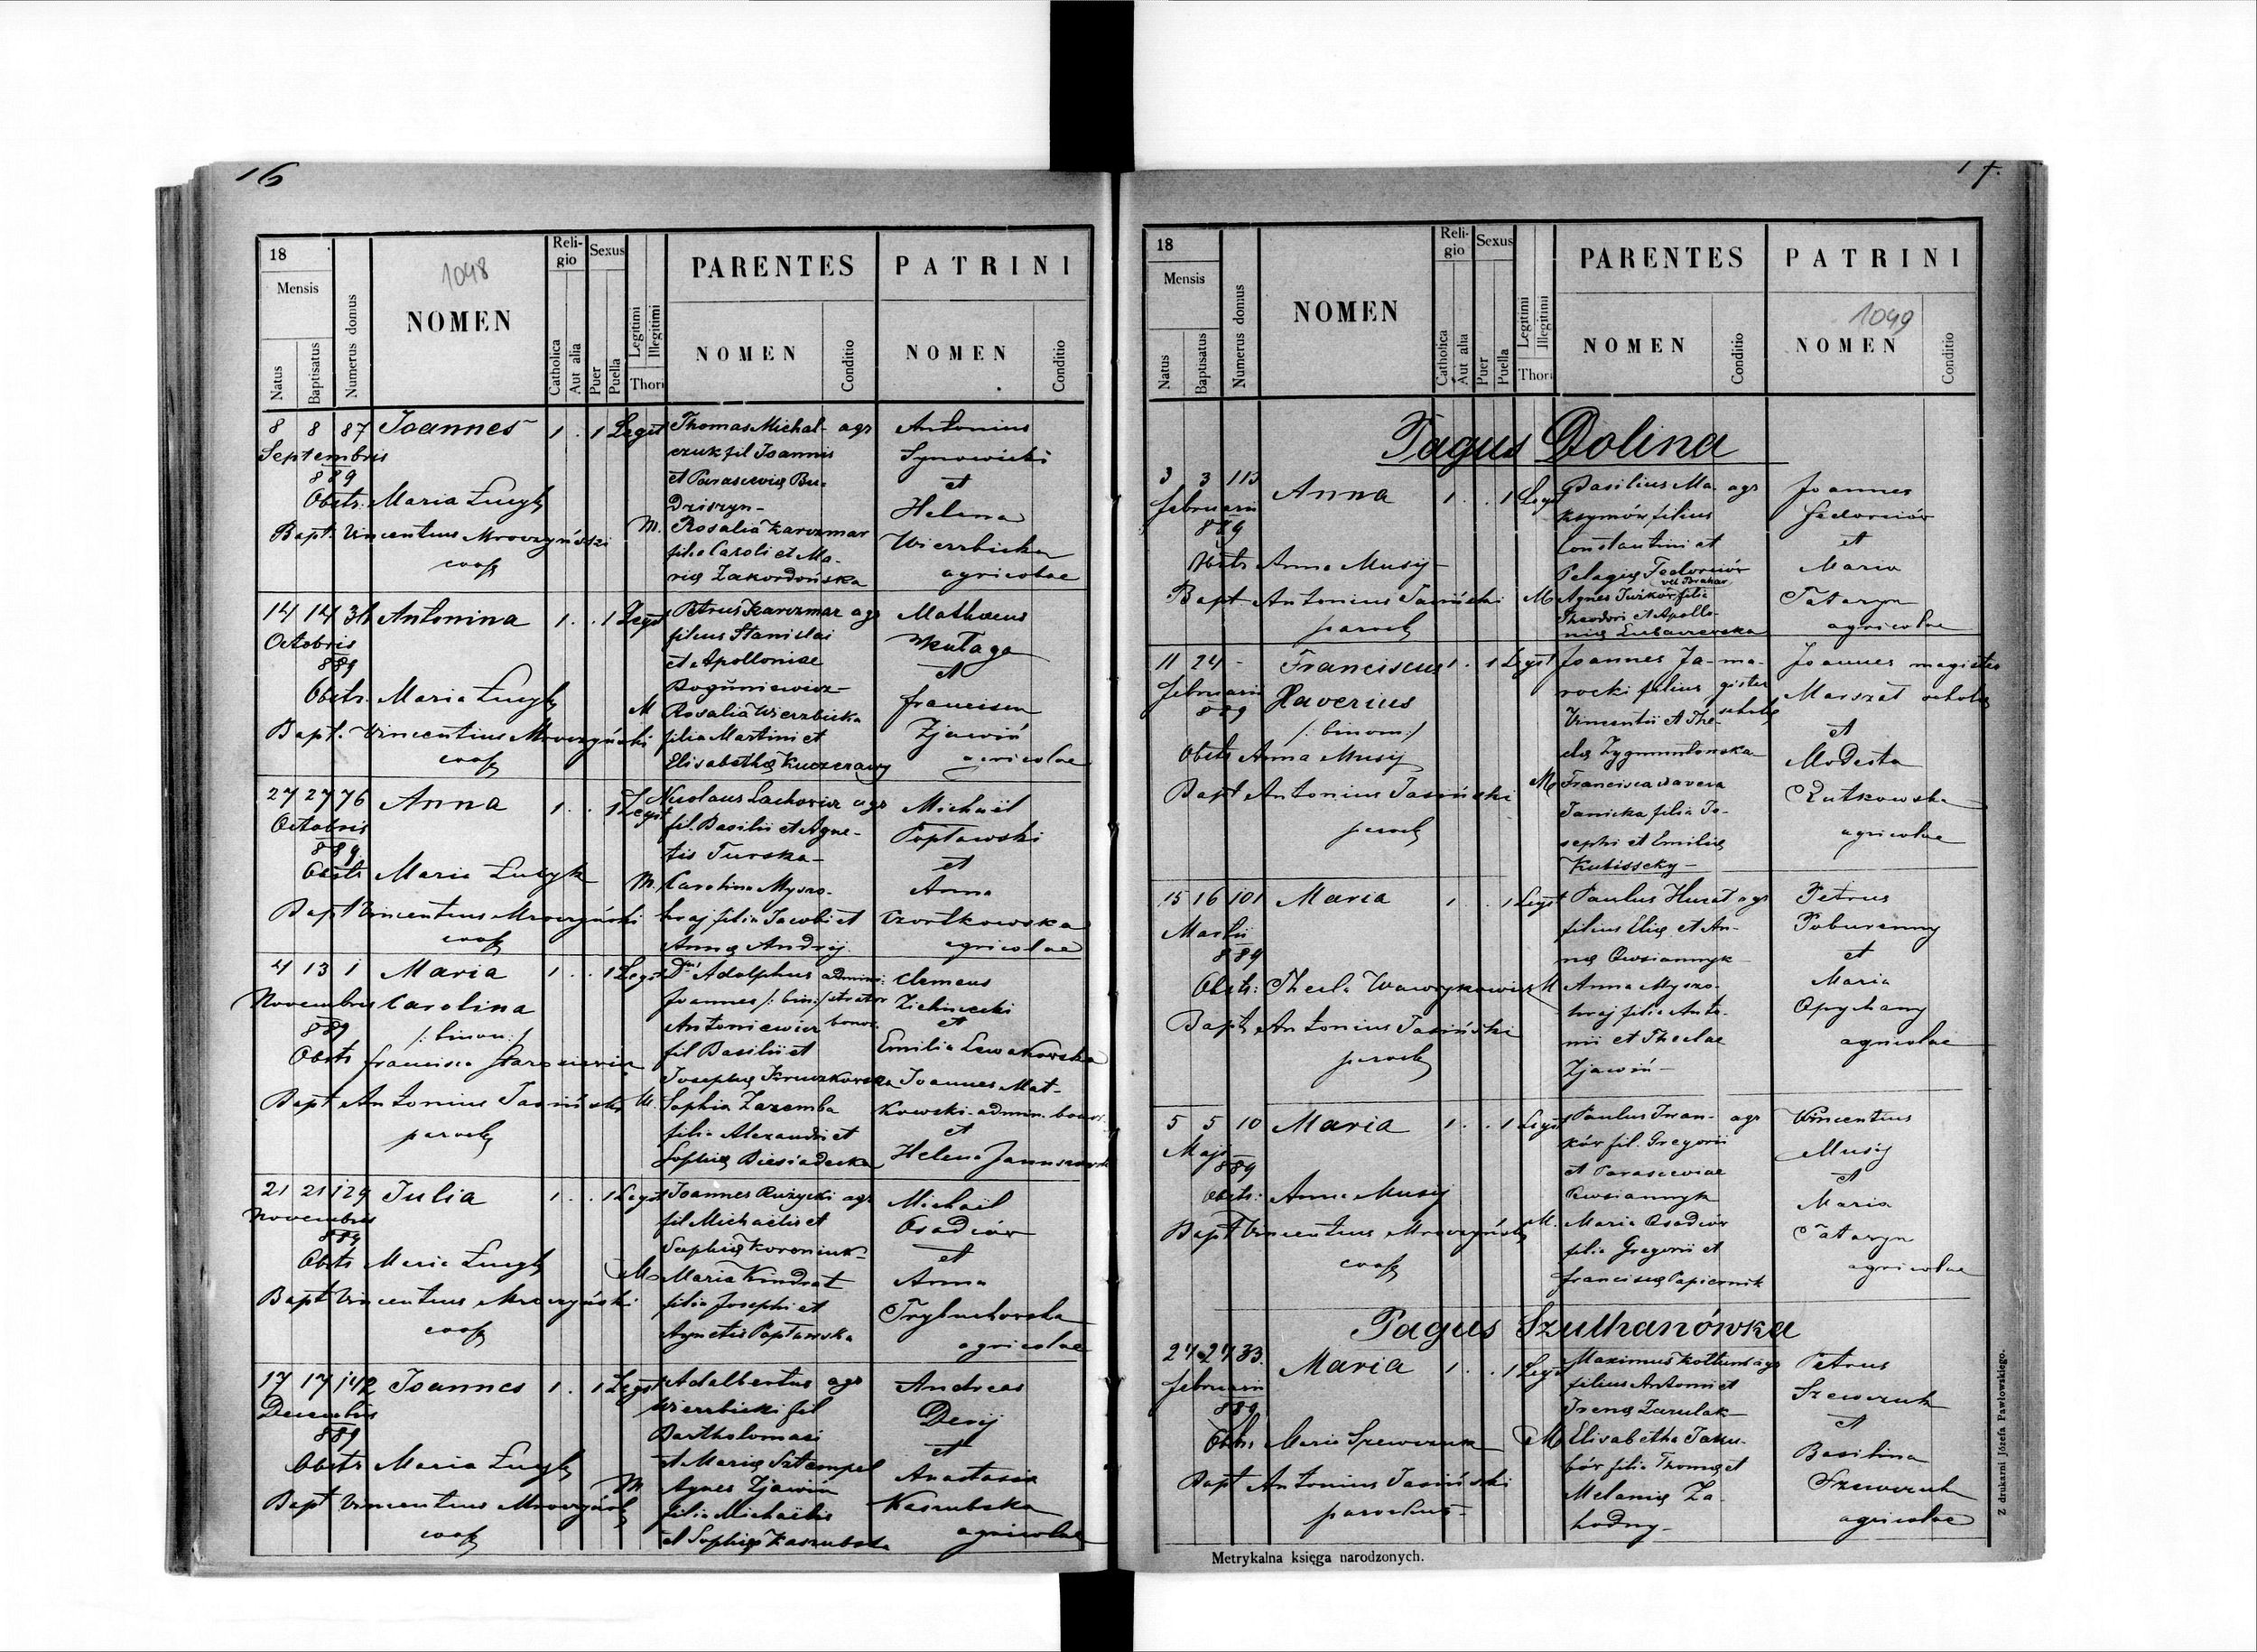 16
18
Mensis
Natus
Baptisatus
Numerus domus
1048
NOMEN
Reli-
gio
Catholica
Aut alia
Sexus
Puer
Puella
Legitimi
Illegitimi
Thori
PARENTES
NOMEN
Conditio
PATRINI
NOMEN
Conditio
8 8 87 Joannes 1 . 1 Legit Thomas Michal- agr Antonius
Septembris czuk fil Joannis Synowicki
889 et Parascevię Bu- et
Obstr. Maria Dziszyn- Helena
Bapt. Vincentius Mroczyński M. Rosalia Karczmar Wierzbicka
coop filia Caroli et Ma- agricolae
rię Zakordońska
14 14 31 Antonina 1 . . 1 Legit Petrus Karczmar agr Mathaeus
Octobris filius Stanislai
889 et Apolloniae et
Obstr. Maria Boguniewicz- Francisca
Bapt. Vincentius Mroczyński M Rosalia Wierzbicka Zjawiń
coop filia Martini et agricolae
Elisabethę Kuczerawy
27 27 76 Anna 1 . . 1 Legit Nicolaus Lachowicz agr Michaël
Octobris fil. Basilii et Agne- Popławski
889 tis Turska- et
Obstr Maria M. Carolina Myszo- Anna
Bapt Vincentius Mroczyński kraj filia Jacobi et Czortkowska
coop Annę Andrij agricolae
4 13 1 Maria 1 . . 1 Legit Adolphus admini- Clemens
Novembris Carolina Joannes /:bin:/ strator
889 /:binom:/ Antoniewicz bonor. et
Obstr Francisca fil Basilii et Emilia Lewakowska
Josephę Kruszkowska Joannes Mat-
Bapt Antonius Jasiński M. Sophia Zaremba kowski admin. bonor.
paroch filia Alexandri et et
Sophię Biesiadecka Helena
21 21 129 Julia 1 . . 1 Legit Joannes Rużycki agr Michaël
Novembris fil Michaëlis et Osadców
889 Sophię Koroniuk- et
Obstr Maria M Maria Kindrat Anna
Bapt Vincentius Mroczyński filia Josephi et Trybuchowska
coop Agnetis Popławska agricolae
17 17 142 Joannes 1 . 1 Legit Adalbertus agr Andreas
Decembris Wierzbicki fil Derij
889 Bartholomaei et
Obstr Maria et Marię Sztempel Anastasia
M Agnes Zjawiń Kaszubska
Bapt Vincentius filia Michaëlis agricolae
coop et Sophię Kaszubska
17.
18
Mensis
Natus
Baptisatus
Numerus domus
NOMEN
Reli-
gio
Catholica
Aut alia
Sexus
Puer
Puella
Legitimi
Illegitimi
Thori
PARENTES
NOMEN
Conditio
PATRINI
1049
NOMEN
Conditio
Pagus Dolina
3 3 113 Anna 1 . . 1 Legit Basilius Ma- agr Joannes
Februarii ksymów filius Fedorciów
889 Constantini et et
Obstr Anna Musij- Pelagię Fedorciów Maria
Bapt Antonius Jasiński M Agnes filia Tataryn
paroch Theodori et Apollo- agricolae
nię
11 24 - Franciscus 1 . 1 Legit Joannes Ja- ma- Joannes magister
Februarii Xaverius rocki filius gister Marszał scholę
889 /:binom:/ Vincentii et The- scholę et
Obstr Anna Musij clę Zygmuntowska Modesta
Bapt Antonius Jasiński M Francisca Xavera Rutkowska
paroch Janicka filia Jo- agricolae
sephi et Emilię
15 16 101 Maria 1 . . 1 Legit Paulus agr Petrus
Martii filius Elię et An- Poburenny
889 nę Owsiannyk et
Obstr: Thecla M Anna Myszo- Maria
Bapt Antonius Jasiński kraj filia Anto- Opychany
paroch nii et Theclae agricolae
Zjawiń-
5 5 10 Maria 1 . . 1 Legit Paulus Iwan- agr Vincentius
Maji ków fil. Gregorii Musij
889 et Parasceviae et
Obstr: Anna Musij Owsiannyk Maria
Bapt Vincentius Mroczyński M. Maria Osadców Tataryn
coop filia Gregorii et agricolae
Francisca Papiernik
Pagus Szulhanówka
27 27 33. Maria 1 . . 1 Legit Maximus Kołtun agr Petrus
Februarii filius Antoni et Szewczuk
889 Irenę Zarulak- et
Obstr. Maria Szewczuk M Elisabetha Basilina
Bapt Antonius Jasiński filia Thomę et Szewczuk
parochus- Melanię Za- agricolae
hodny-
Metrykalna księga narodzonych.
Z drukarni Józefa Pawłowskiego.